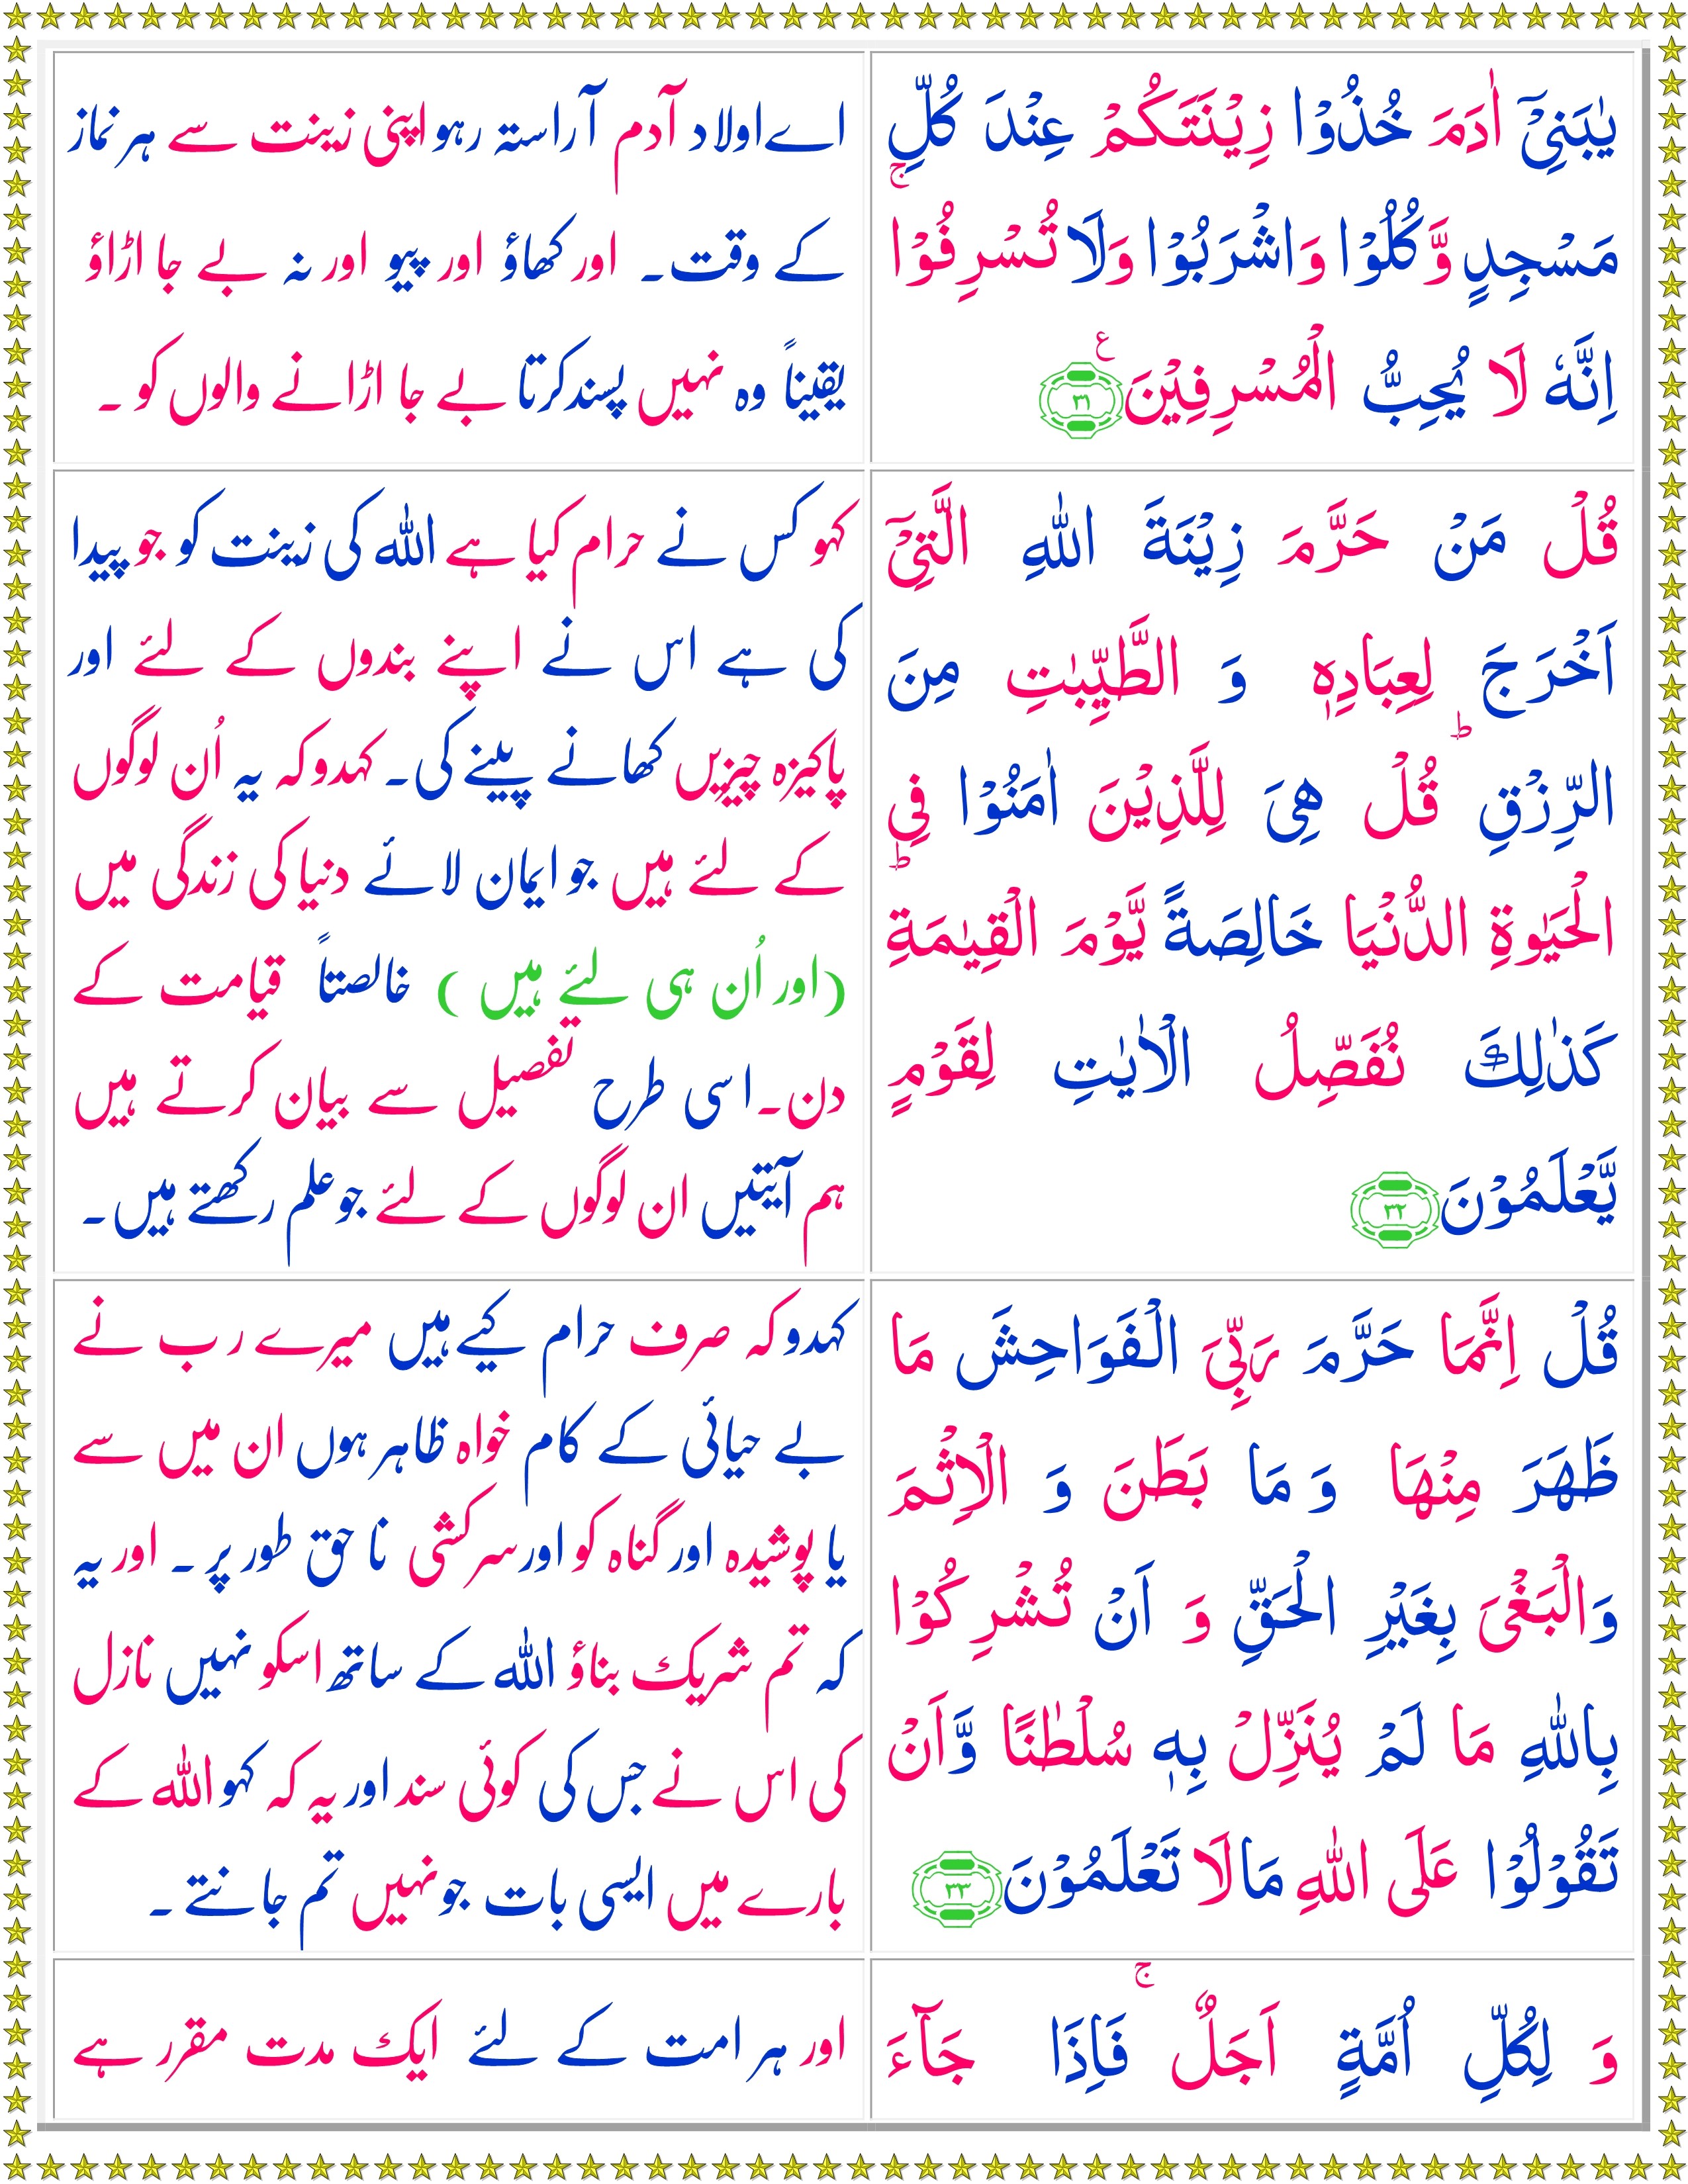 یٰبَنِیْۤ اٰدَمَ خُذُوْا زِیْنَتَكُمْ عِنْدَ كُلِّ
مَسْجِدٍ وَّ كُلُوْا وَ اشْرَبُوْا وَلَا تُسْرِفُوْا ۚ
اِنَّهٗ لَا یُحِبُّ الْمُسْرِفِیْنَ ۧ ﴿۳۱﴾
اے اولاد آدم آراستہ رہو اپنی زینت سے ہر نماز
کے وقت۔ اور کھاؤ اور پیو اور نہ بے جا اڑاؤ
یقیناً وہ نہیں پسند کرتا بے جا اڑانے والوں کو ۔
قُلْ مَنْ حَرَّمَ زِیْنَةَ اللهِ الَّتِیْۤ
اَخْرَجَ لِعِبَادِهٖ وَ الطَّیِّبٰتِ مِنَ
الرِّزْقِ ؕ قُلْ هِیَ لِلَّذِیْنَ اٰمَنُوْا فِی
الْحَیٰوةِ الدُّنْیَا خَالِصَةً یَّوْمَ الْقِیٰمَةِ ؕ
كَذٰلِكَ نُفَصِّلُ الْاٰیٰتِ لِقَوْمٍ
یَّعْلَمُوْنَ ﴿۳۲﴾
کہو کس نے حرام کیا ہے اللہ کی زینت کو جو پیدا
کی ہے اس نے اپنے بندوں کے لئے اور
پاکیزہ چیزیں کھانے پینے کی۔ کہدو کہ یہ اُن لوگوں
کے لئے ہیں جو ایمان لائے دنیا کی زندگی میں
(اور اُن ہی لئے ہیں ) خالصتاً قیامت کے
دن۔ اسی طرح تفصیل سے بیان کرتے ہیں
ہم آیتیں ان لوگوں کے لئے جو علم رکھتے ہیں۔
قُلْ اِنَّمَا حَرَّمَ رَبِّیَ الْفَوَاحِشَ مَا
ظَهَرَ مِنْهَا وَ مَا بَطَنَ وَ الْاِثْمَ
وَ الْبَغْیَ بِغَیْرِ الْحَقِّ وَ اَنْ تُشْرِكُوْا
بِاللهِ مَا لَمْ یُنَزِّلْ بِهٖ سُلْطٰنًا وَّ اَنْ
تَقُوْلُوْا عَلَى اللهِ مَا لَا تَعْلَمُوْنَ ﴿۳۳﴾
کہدو کہ صرف حرام کیے ہیں میرے رب نے
بے حیائی کے کام خواہ ظاہر ہوں ان میں سے
یا پوشیدہ اور گناہ کو اور سرکشی نا حق طور پر ۔ اور یہ
کہ تم شریک بناؤ اللہ کے ساتھ اسکو نہیں نازل
کی اس نے جس کی کوئی سند اور یہ کہ کہو اللہ کے
بارے میں ایسی بات جو نہیں تم جانتے ۔
وَ لِكُلِّ اُمَّةٍ اَجَلٌ ۚ فَاِذَا جَآءَ
اور ہر امت کے لئے ایک مدت مقرر ہے